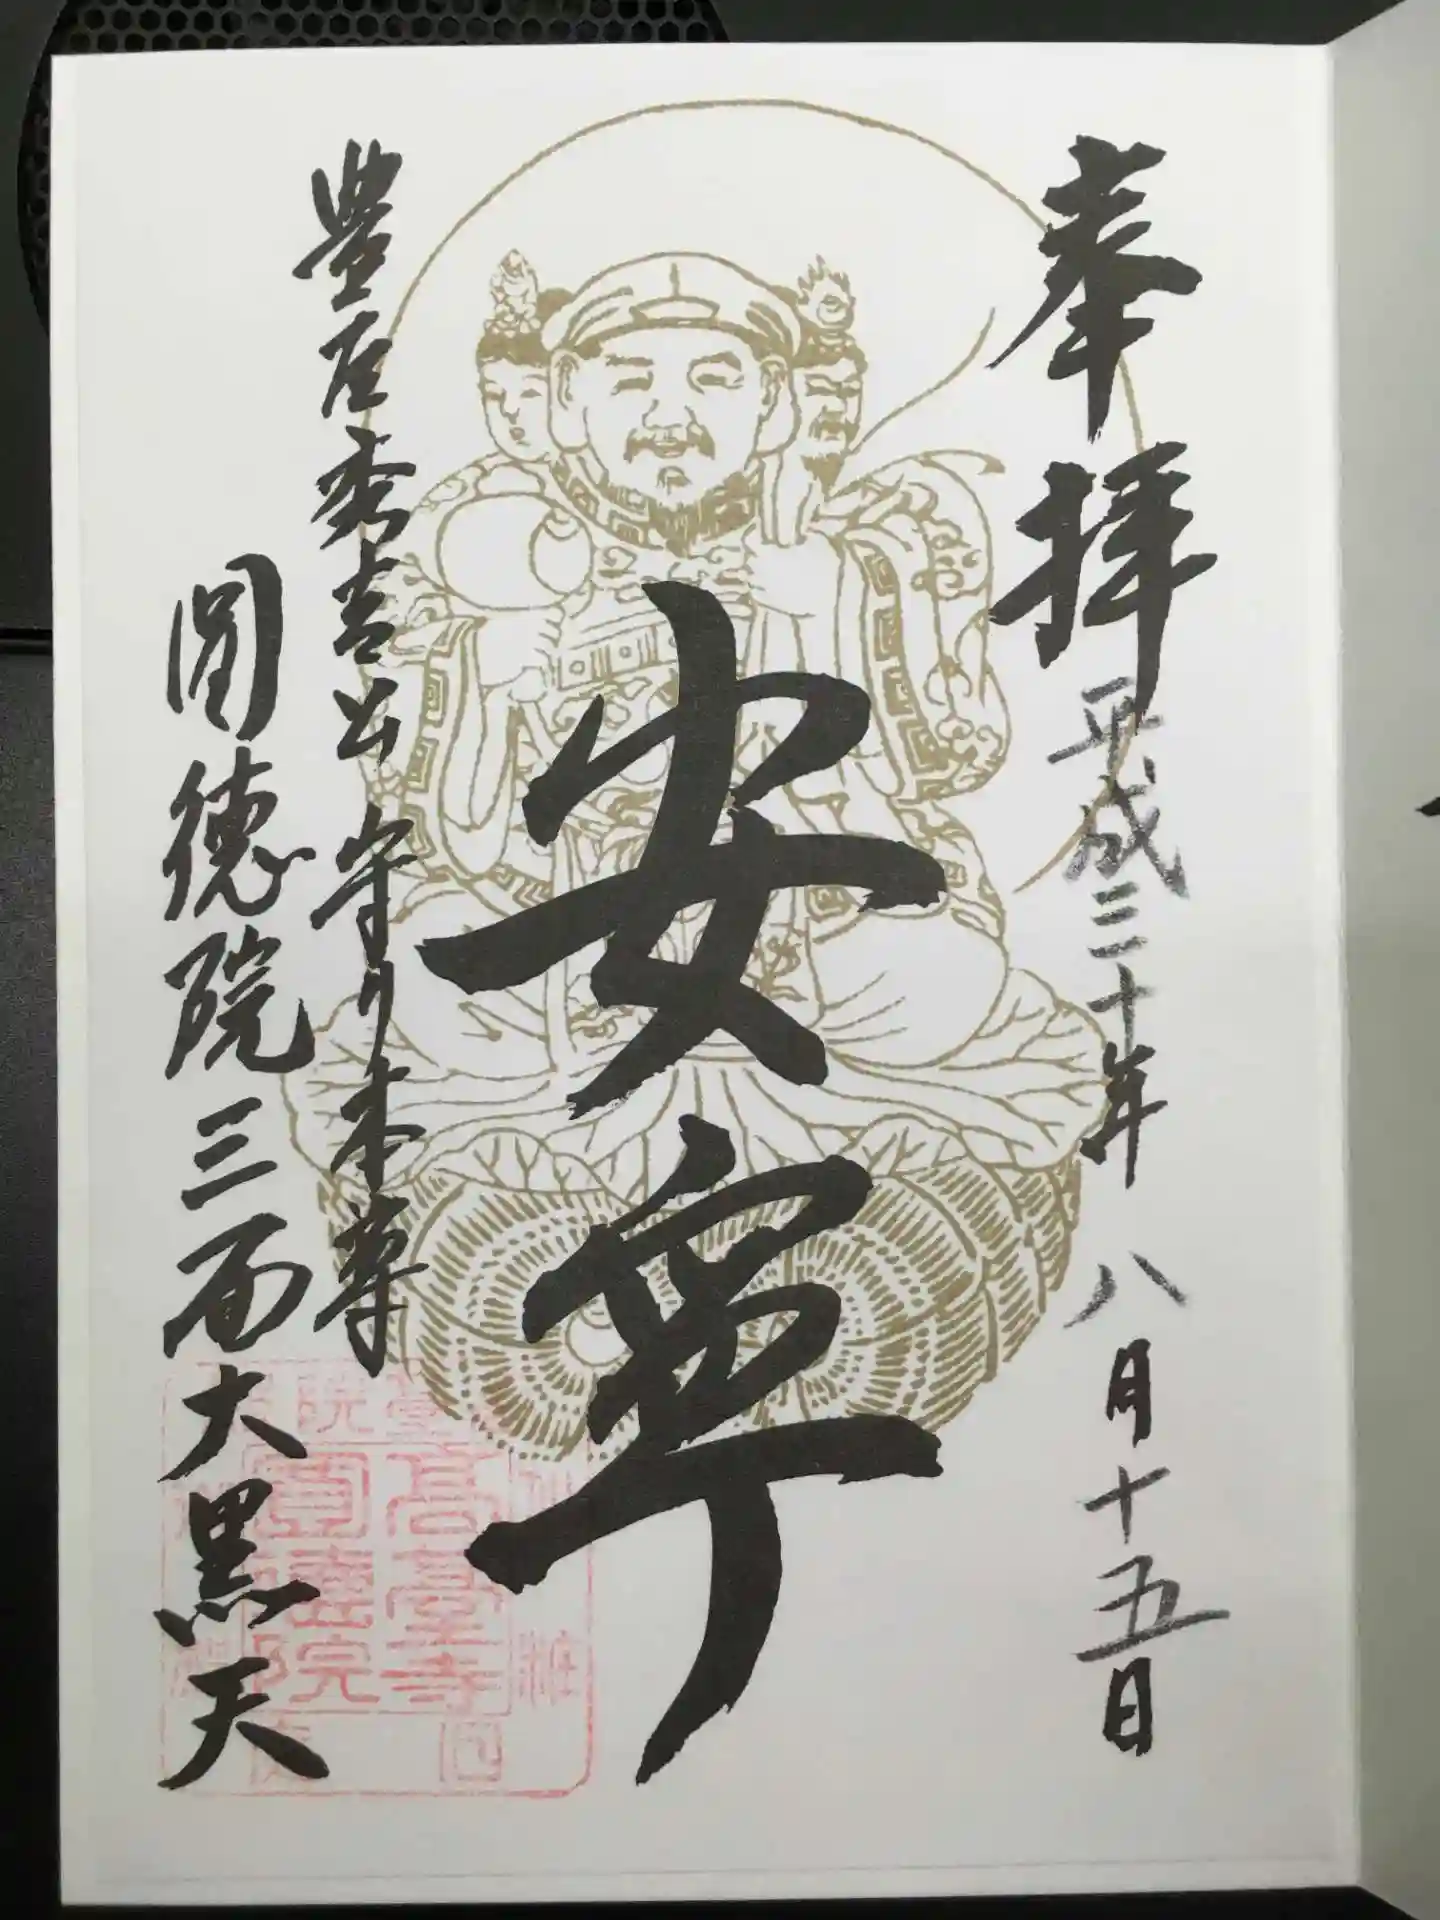 奉拝
平成三十年 八月十五日
安寧
豊臣秀吉公 守り本尊
圓徳院三面大黒天
高臺寺
圓德院